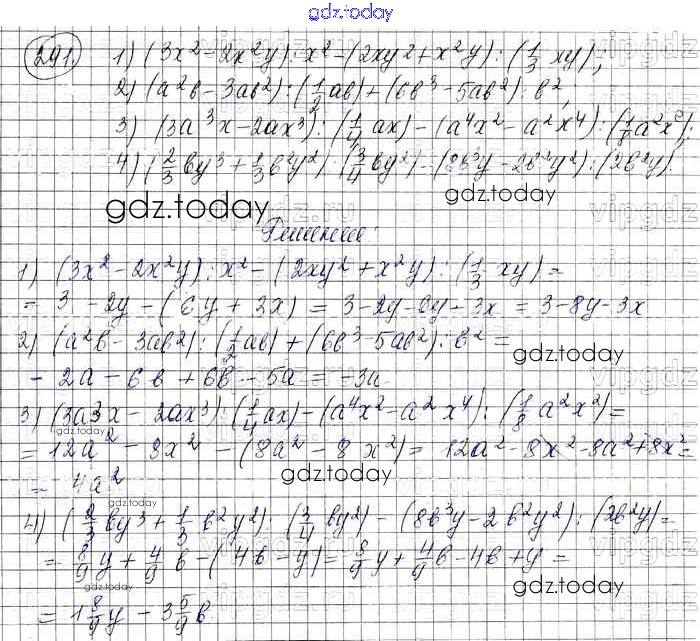 gdz.today
291. 1) (3x² - 2x²y) : x² - (2xy² + x²y) : (1/3 xy);
2) (a²b - 3ab²) : (1/2 ab) + (6b³ - 5ab²) : b²;
3) (3a³x - 2ax³) : (1/4 ax) - (a⁴x² - a²x⁴) : (1/8 a²x²);
4) (2/3 by³ + 1/3 b²y²) : (3/4 by²) - (8b³y - 2b²y²) : (2b²y).
gdz.today
gdz.today
Решение:
1) (3x² - 2x²y) : x² - (2xy² + x²y) : (1/3 xy) =
= 3 - 2y - (6y + 3x) = 3 - 2y - 6y - 3x = 3 - 8y - 3x
2) (a²b - 3ab²) : (1/2 ab) + (6b³ - 5ab²) : b² =
gdz.today
= 2a - 6b + 6b - 5a = -3a
3) (3a³x - 2ax³) : (1/4 ax) - (a⁴x² - a²x⁴) : (1/8 a²x²) =
gdz.today
= 12a² - 8x² - (8a² - 8x²) = 12a² - 8x² - 8a² + 8x² =
gdz.today
= 4a²
gdz.today
4) (2/3 by³ + 1/3 b²y²) : (3/4 by²) - (8b³y - 2b²y²) : (2b²y) =
= 8/9 y + 4/9 b - (4b - y) = 8/9 y + 4/9 b - 4b + y =
gdz.today
gdz.today
= 1 8/9 y - 3 5/9 b